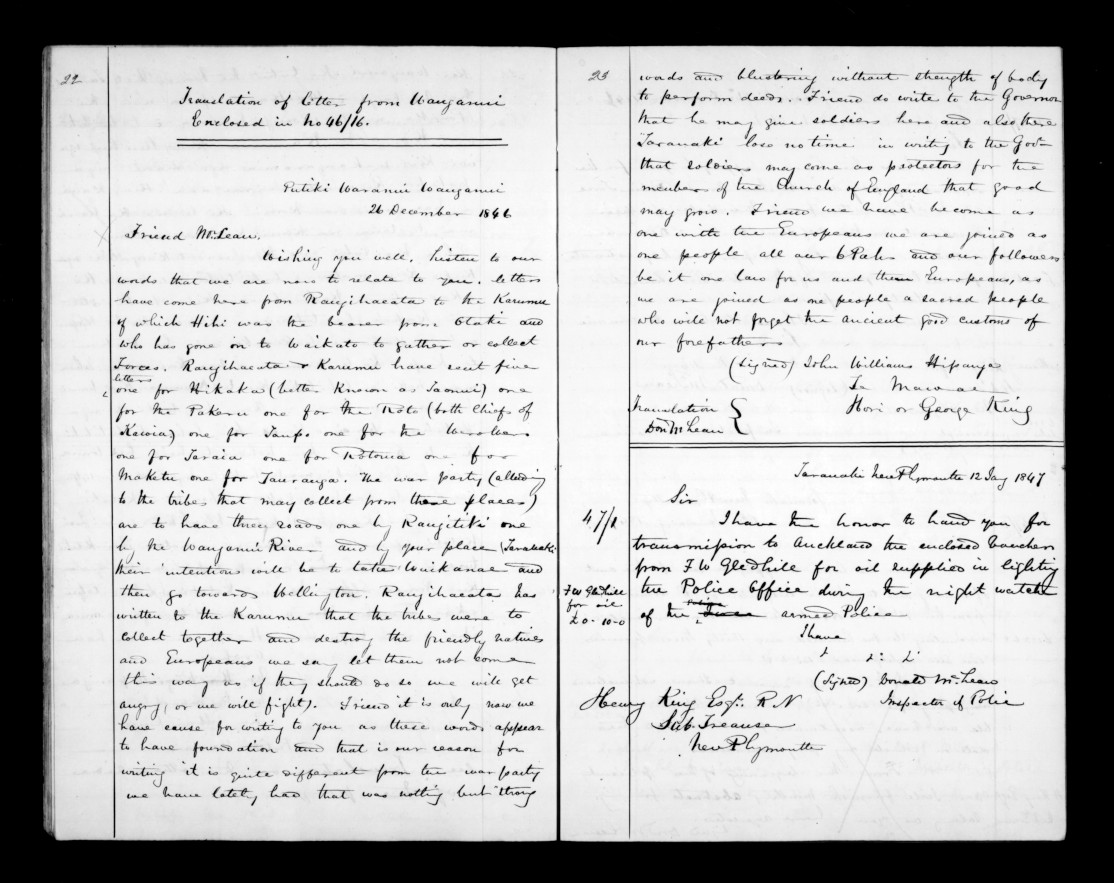 22
Translation of letter from Wanganui
Enclosed in No 46/16.
Putiki Waranui Wanganui
26 December 1846
Friend McLean.
Wishing you well. listen to our
words that we are now to relate to you. letters
have come here from Rangihaeata to the Karumu
of which Hihi was the bearer from Otaki and
who has gone on to Waikato to gather or collect
Forces. Rangihaeata & Karumu have sent five
letters
one for Hikaka (better Known as Taonui) one
for the Pakaru one for the (both Chiefs of
Kawia) one for Taupo one for the
one for Taraia one for Rotorua one for
Maketu one for Tauranga. The war party (alluding
to the tribes that may collect from these places)
are to have three roads one by Rangitiki one
by the Wanganui River and by your place (Taranaki
their intentions will be to take Waikanae and
then go towards Wellington. Rangihaeata has
written to the Karumu that the tribes were to
collect together and destroy the friendly natives
and Europeans we say let them not come
this way as if they should do so we will get
angry, or we will fight). Friend it is only now we
have cause for writing to you as these words appear
to have foundation and that is our reason for
writing it is quite different from the war party
we have lately had that was nothing but strong
23
words and blustering without strength of body
to perform deeds. Friend do write to the Governor
that he may give soldiers here and also there
Taranaki lose no time in writing to the Govr
that soldiers may come as protectors for the
members of the Church of England that good
may grow. Friend we have become as
one with the Europeans we are joined as
one people all our 6 Pahs and our followers
be it one law for us and them Europeans, as
we are joined as one people a sacred people
who will not forget the ancient good customs of
our forefathers
(Signed) John Williams Hipango
Te Mawae
Hori or George King
Translation
Don McLean
Taranaki New Plymouth 12 Jany 1847
Sir
47/1
I have the honor to hand you for
transmission to Auckland the enclosed Vouchers
from F W Gledhill for oil supplied in lighting
the Police Office during the night watch
F W Gledhill
for oil
£0-10-0
of the armed Police
I have
(Signed) Donald McLean
Inspector of Police
Henry King Esqr. R N
Sub. Treasurer
New Plymouth